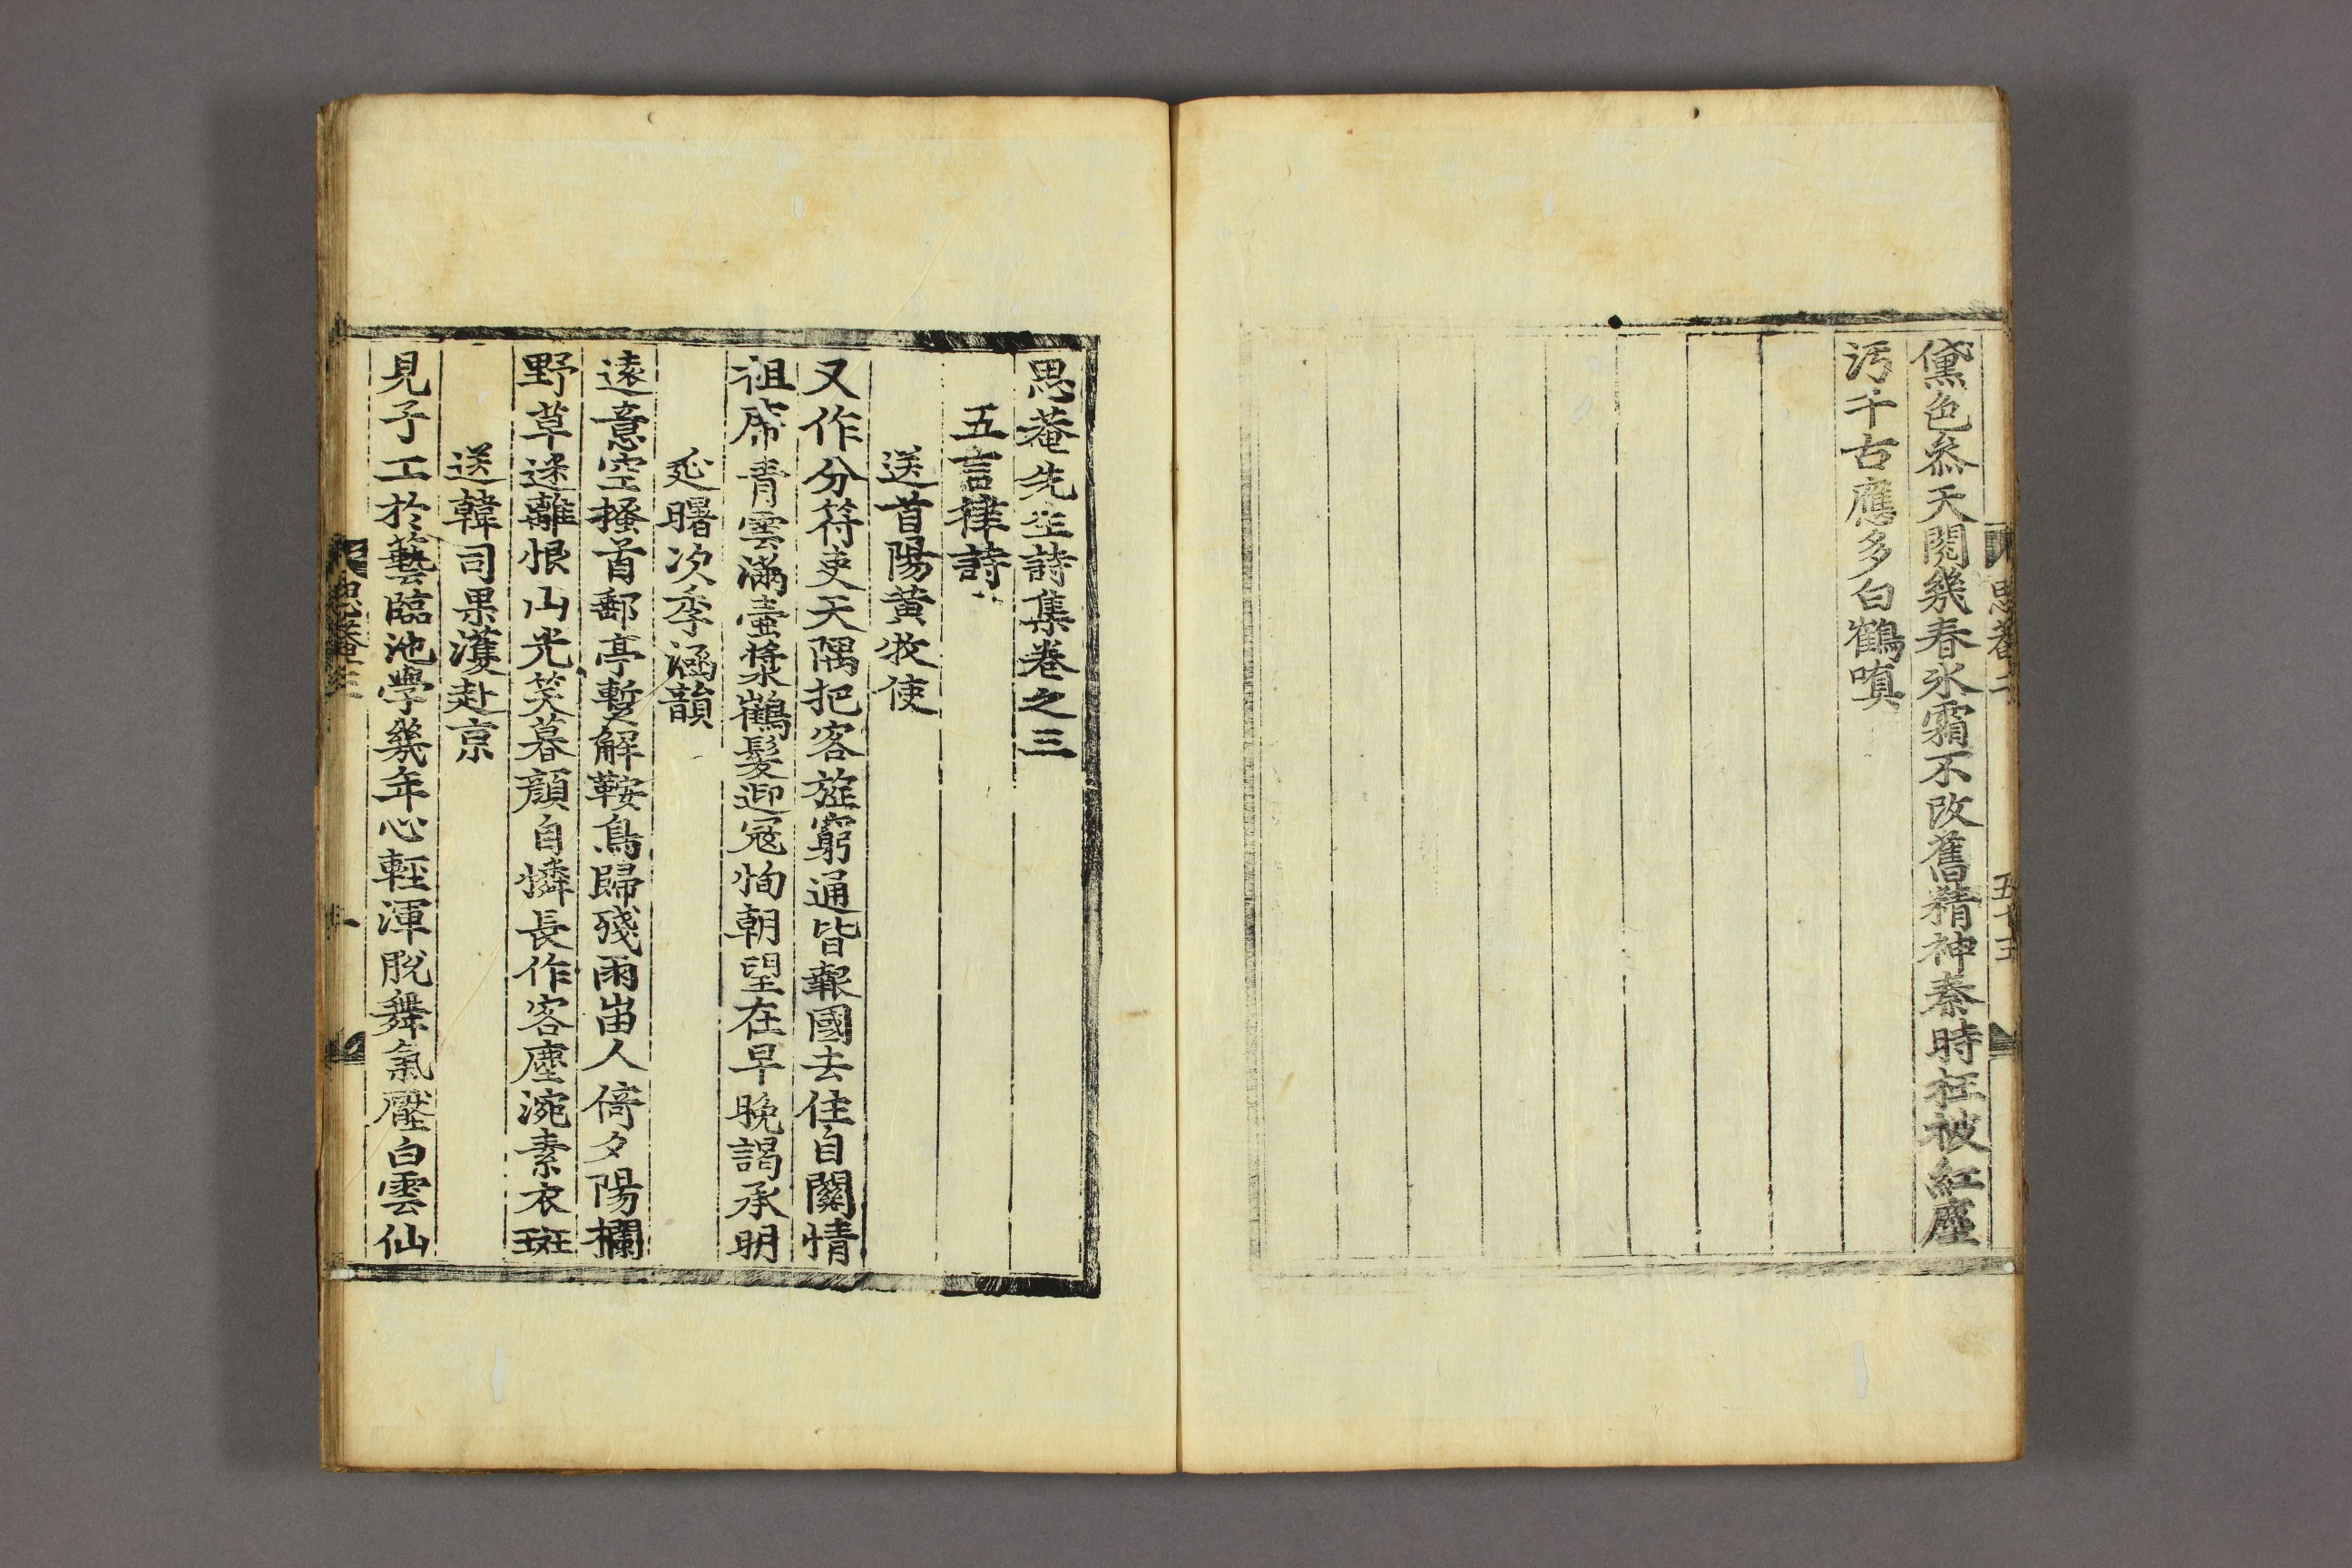 黛色叅天閱幾春氷霜不改舊精神秦時枉被紅塵
汚千古應多白鶴嗔
思菴先生詩集卷之三
五言律詩
送首陽黃牧使
又作分符吏天隅把客旌窮通皆報國去住自關情
祖席靑雲滿壺漿鶴髮迎寇恂朝望在早晚謁承明
延曙次季涵韻
遠意空搔首郵亭暫解鞍鳥歸殘雨峀人倚夕陽欄
野草迷離恨山光笑暮顔自憐長作客塵涴素衣斑
送韓司果濩赴京
見子工於藝臨池學幾年心輕渾脫舞氣壓白雲仙
思菴三
一